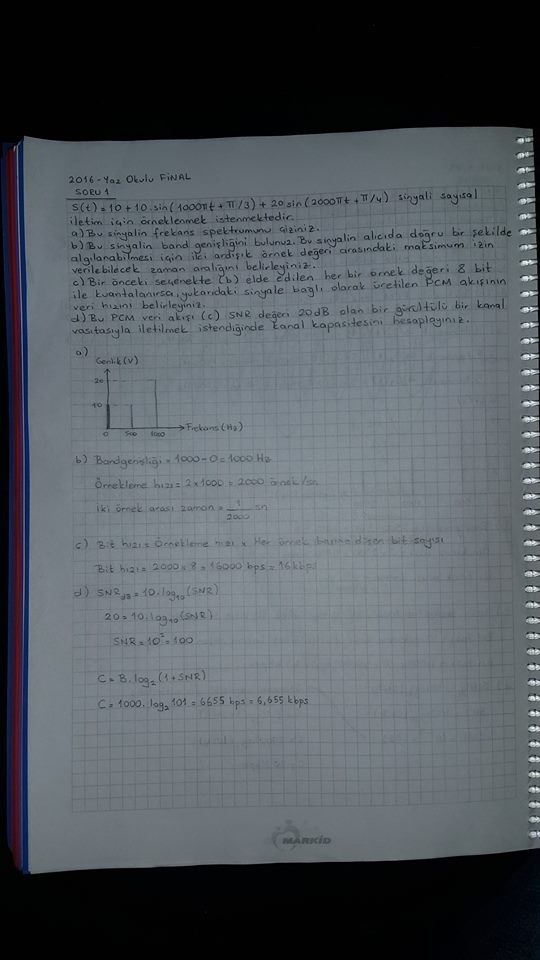 2016-Yaz Okulu FiNAL
SORU 1
S(t)=10+10.sin(1000πt+π/3)+20sin(2000πt+π/4) sinyali sayısal
iletim için örneklenmek istenmektedir.
a) Bu sinyalin frekans spektrumunu çiziniz.
b) Bu sinyalin band genişliğini bulunuz. Bu sinyalin alıcıda doğru bir şekilde
algılanabilmesi için iki ardışık örnek değeri arasındaki maksimum izin
verilebilecek zaman aralığını belirleyiniz.
c) Bir önceki seçenekte (b) elde edilen her bir örnek değeri 8 bit
ile kuantalanırsa, yukarıdaki sinyale bağlı olarak üretilen PCM akışının
veri hızını belirleyiniz.
d) Bu PCM veri akışı (c) SNR değeri 20dB olan bir gürültülü bir kanal
vasıtasıyla iletilmek istendiğinde kanal kapasitesini hesaplayınız.
a)
Genlik(V)
20
10
0 500 1000 Frekans(Hz)
b) Bandgenişliği = 1000-0=1000 Hz
Örnekleme hızı = 2x1000 = 2000 örnek/sn
iki örnek arası zaman = 1/2000 sn
c) Bit hızı = Örnekleme hızı x Her örnek başına düşen bit sayısı
Bit hızı = 2000 x 8 = 16000 bps = 16kbps
d) SNR dB = 10.log10(SNR)
20 = 10.log10(SNR)
SNR = 10² = 100
C = B.log2(1+SNR)
C = 1000.log2 101 = 6655 bps = 6,655 kbps
MARKİD